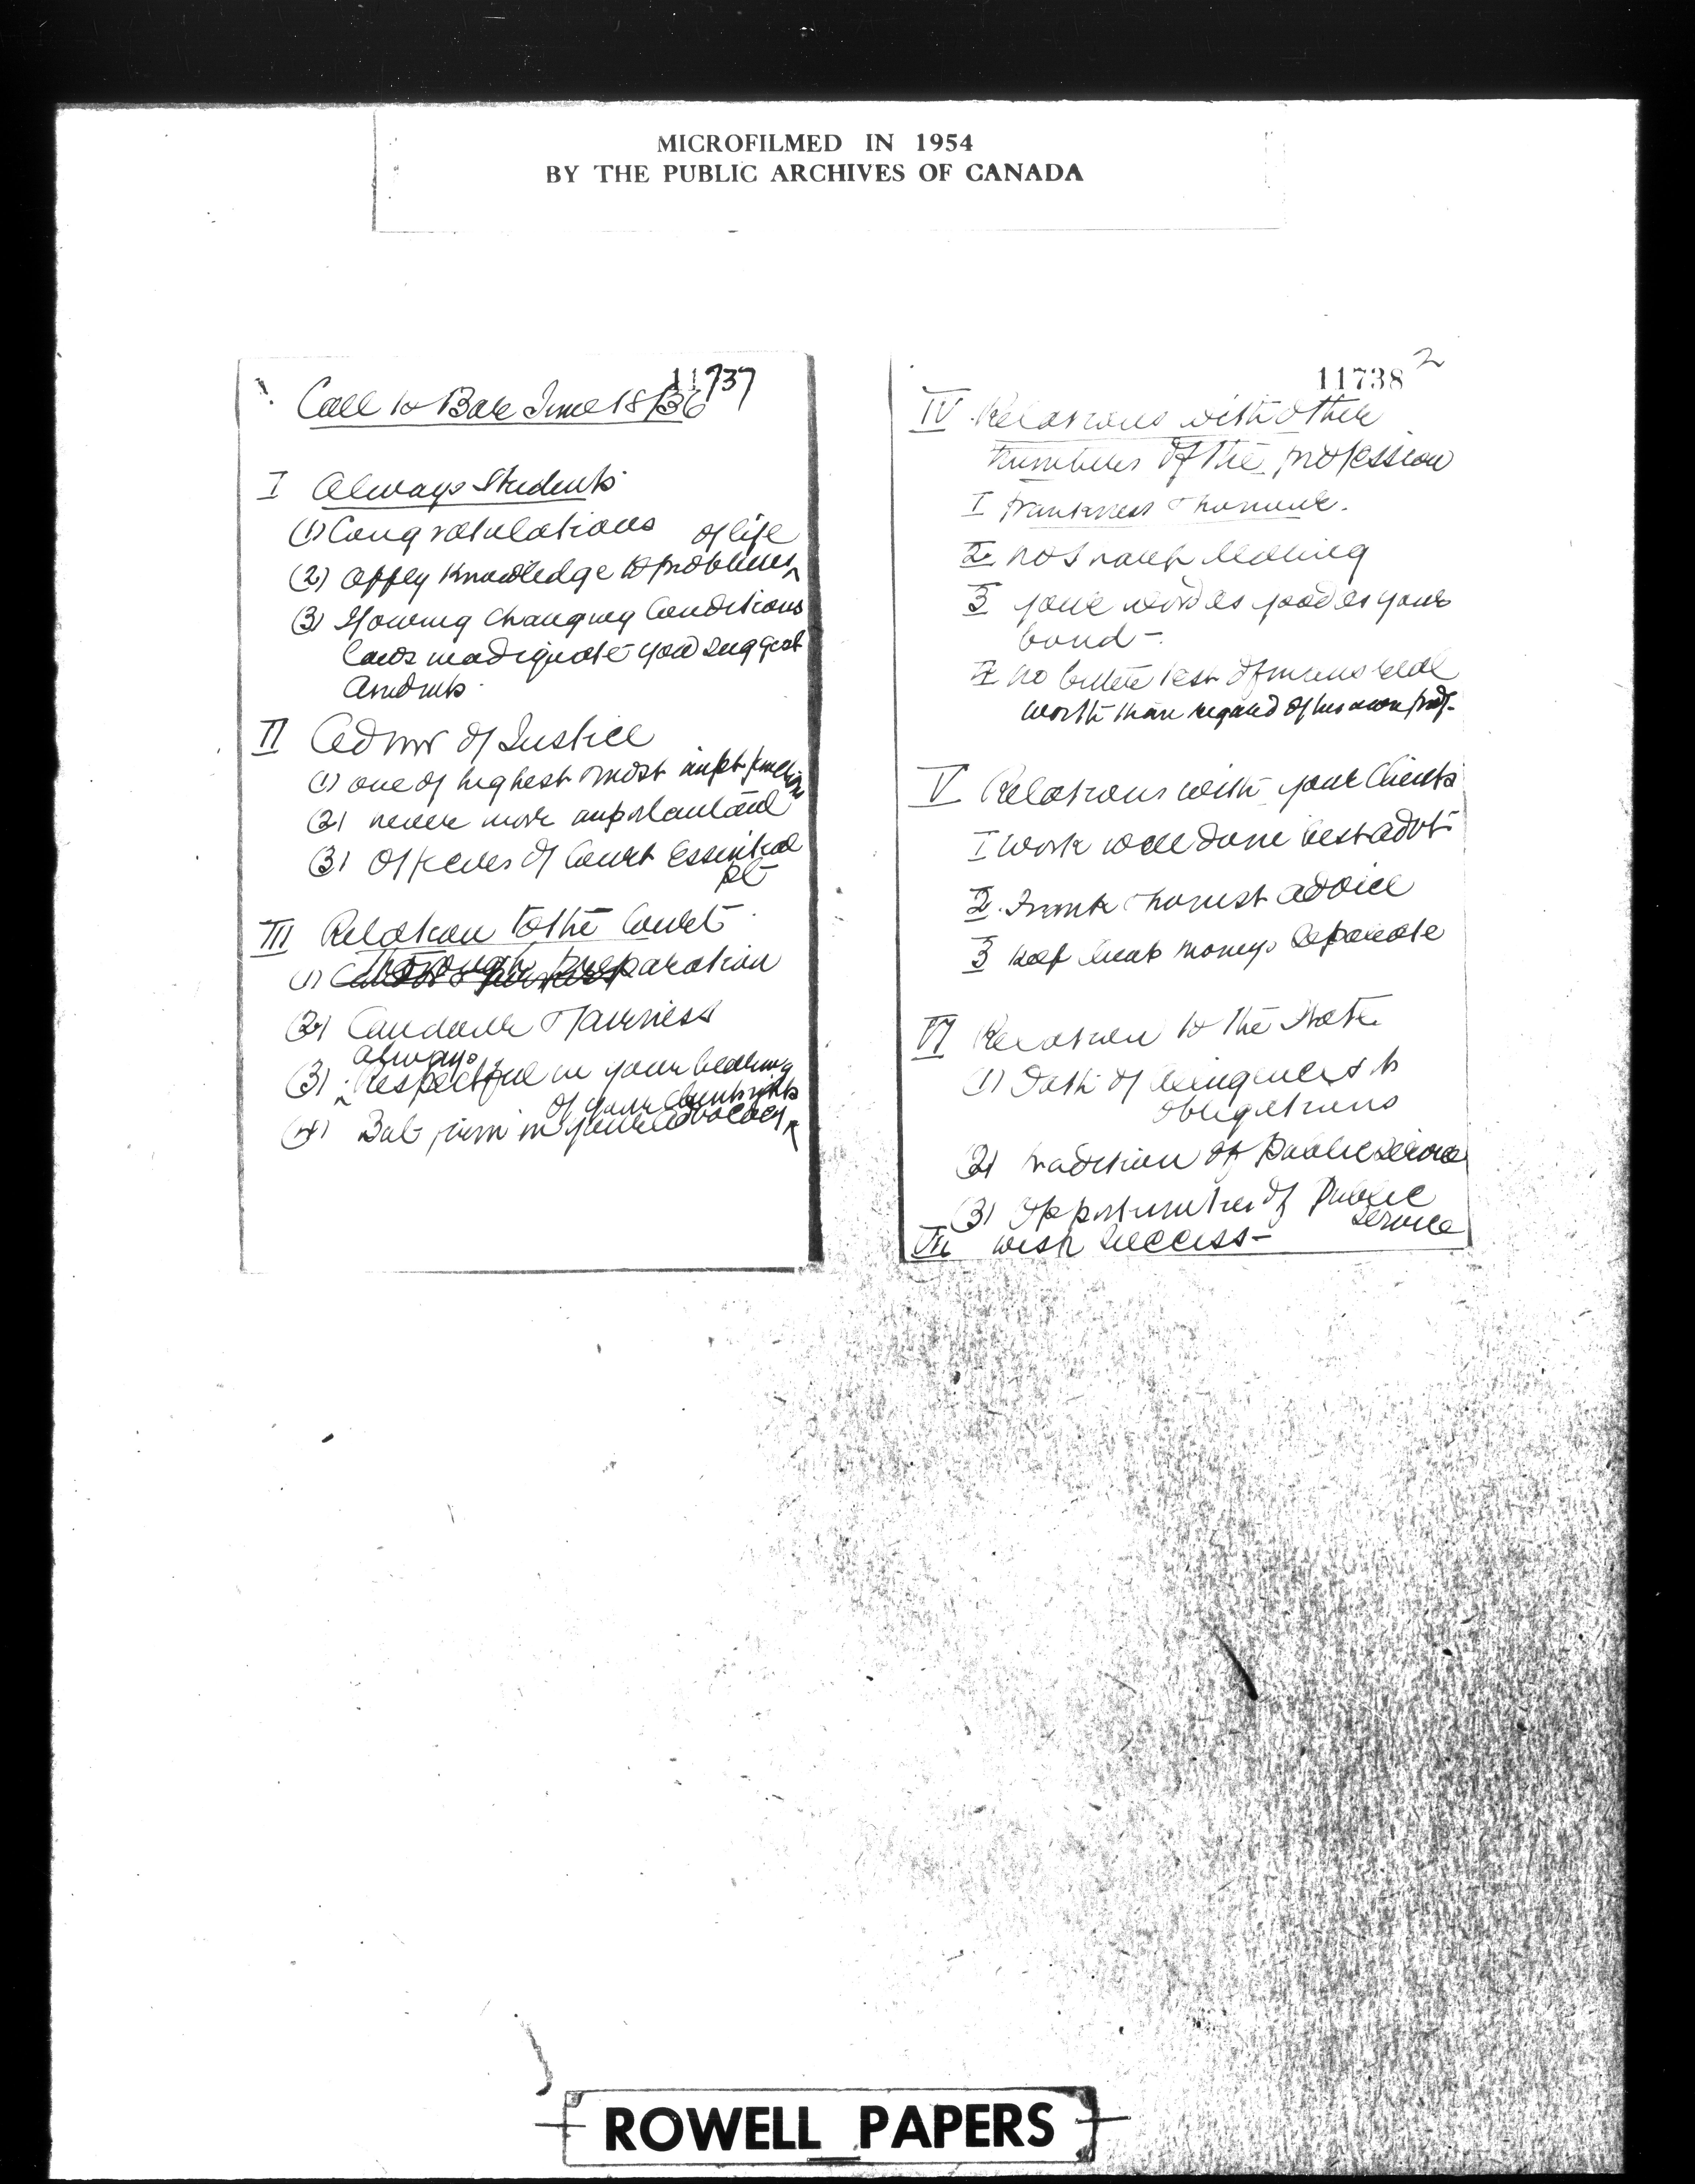 MICROFILMED IN 1954
BY THE PUBLIC ARCHIVES OF CANADA
11737
Call to Bar June 18/36
I Always Students
(1) Congratulations
of life
(2) Apply knowledge to problems
(3) changing Conditions
laws inadequate you suggest
Amdmts
II Admr of Justice
(1) one of highest & most impt function
(2) never more important
(3) Officers of Court Essential
pt
III Relation to the Court
(1) Thorough preparation
(2) Candour & Fairness
always
(3) Respectful in your bearing
of your clients rights
(4) But firm in your advocacy
11738 2
IV Relations with other
members of the profession
1 Frankness & honour.
2 no sharp
3 your word as good as your
bond -
4 no better test of mans real
worth than regard of his own prof.
V Relations with your Clients
1 Work well done best advt
2. Frank & honest advice
3 keep moneys separate
VI Relation to the State
(1) Oath of allegiance & its
obligations
(2) tradition of Public service
(3) Opportunities of Public
service
VII wish success -
ROWELL PAPERS